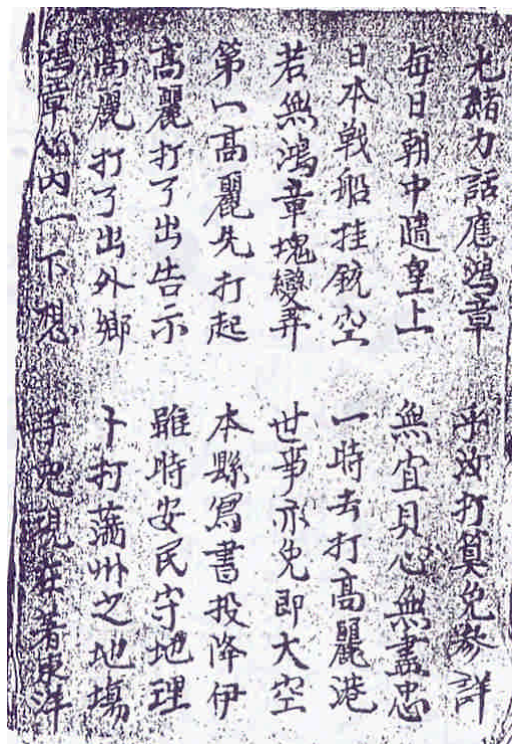 力話應鴻章 汝打算免參詳
每日朝中隨皇上 無宜貝心無盡忠
日本戰船挂銃空 一時去打高麗港
若無鴻章塊變弄 世爭亦免即大空
第一高麗先打起 本縣寫書投降伊
高麗打了出告示 雖時安民守地理
高麗打了出外鄉 卜打滿州之地塲
鴻章心內一下想 免現在着東洋